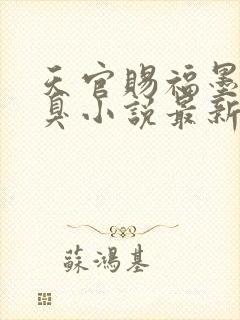 天官賜福墨
臭小説最新
蘇鴻基